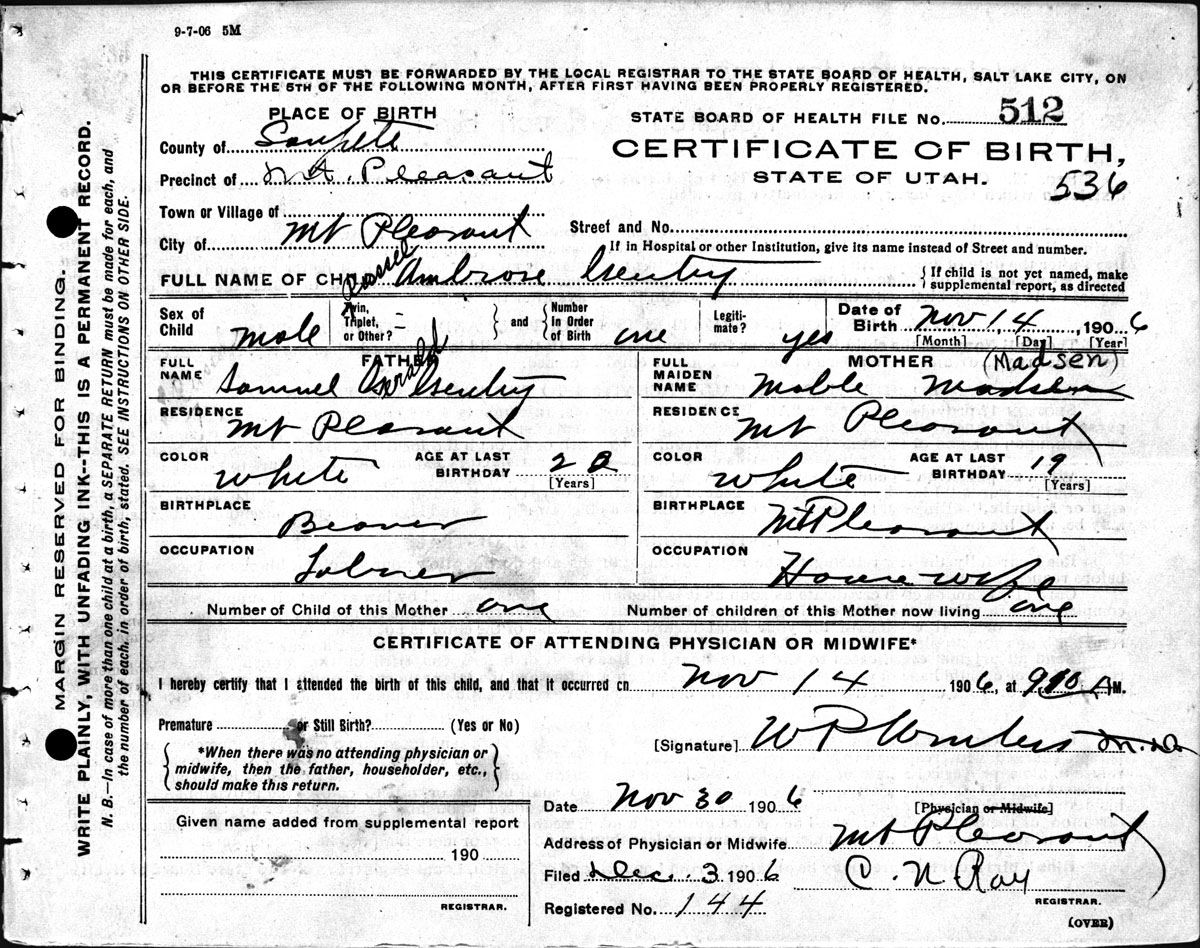 9-7-06 5M
THIS CERTIFICATE MUST BE FORWARDED BY THE LOCAL REGISTRAR TO THE STATE BOARD OF HEALTH, SALT LAKE CITY, ON
OR BEFORE THE 5TH OF THE FOLLOWING MONTH, AFTER FIRST HAVING BEEN PROPERLY REGISTERED.
MARGIN RESERVED FOR BINDING.
WRITE PLAINLY, WITH UNFADING INK--THIS IS A PERMANENT RECORD.
N. B.—In case of more than one child at a birth, a SEPARATE RETURN must be made for each, and
the number of each, in order of birth, stated. SEE INSTRUCTIONS ON OTHER SIDE.
PLACE OF BIRTH
STATE BOARD OF HEALTH FILE No. 512
County of Sanpete
CERTIFICATE OF BIRTH,
Precinct of Mt. Pleasant
STATE OF UTAH.
536
Town or Village of
Street and No.
City of Mt Pleasant
If in Hospital or other Institution, give its name instead of Street and number.
FULL NAME OF CHILD Russel Ambrose Gentry
{ If child is not yet named, make
supplemental report, as directed
Sex of Child male
Twin, Triplet, or Other? =
and
Number In Order of Birth one
Legitimate? yes
Date of Birth Nov 14, 1906
[Month] [Day] [Year]
FATHER
FULL NAME Samuel Gerald Gentry
RESIDENCE Mt Pleasant
COLOR White
AGE AT LAST BIRTHDAY 22
[Years]
BIRTHPLACE Beaver
OCCUPATION Laborer
MOTHER (Madsen)
FULL MAIDEN NAME Mable Madsen
RESIDENCE Mt Pleasant
COLOR White
AGE AT LAST BIRTHDAY 19
[Years]
BIRTHPLACE Mt Pleasant
OCCUPATION House wife
Number of Child of this Mother one
Number of children of this Mother now living one
CERTIFICATE OF ATTENDING PHYSICIAN OR MIDWIFE*
I hereby certify that I attended the birth of this child, and that it occurred on Nov 14 1906, at 9 10 A M.
Premature or Still Birth? (Yes or No)
[Signature] W P Winters M.D.
{ *When there was no attending physician or
midwife, then the father, householder, etc.,
should make this return. }
Date Nov 30 1906
[Physician or Midwife]
Given name added from supplemental report
190
REGISTRAR.
Address of Physician or Midwife Mt Pleasant
Filed Dec. 3 1906
C. N. Ray
REGISTRAR.
Registered No. 144
(OVER)